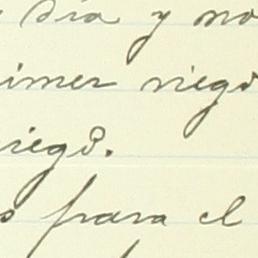 día y no
imer riego
riego.
s para el